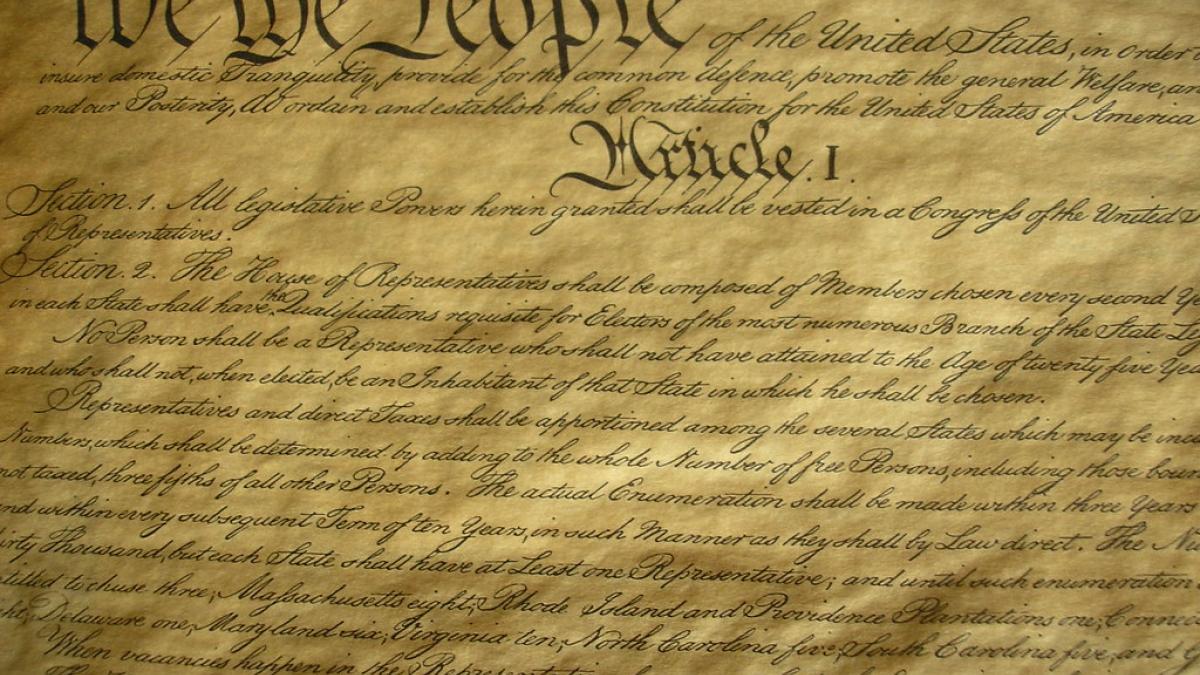 We the People of the United States, in order
insure domestic Tranquility, provide for the common defence, promote the general Welfare, an
and our Posterity, do ordain and establish this Constitution for the United States of America
Article. I.
Section. 1. All legislative Powers herein granted shall be vested in a Congress of the United S
of Representatives.
Section. 2. The House of Representatives shall be composed of Members chosen every second Y
in each State shall have the Qualifications requisite for Electors of the most numerous Branch of the State Leg
No Person shall be a Representative who shall not have attained to the Age of twenty five Yea
and who shall not, when elected, be an Inhabitant of that State in which he shall be chosen.
Representatives and direct Taxes shall be apportioned among the several States which may be inc
Numbers, which shall be determined by adding to the whole Number of free Persons, including those boun
not taxed, three fifths of all other Persons. The actual Enumeration shall be made within three Years
nd within every subsequent Term of ten Years, in such Manner as they shall by Law direct. The Nu
irty Thousand, but each State shall have at Least one Representative; and until such enumeration
titled to chuse three, Massachusetts eight, Rhode Island and Providence Plantations one, Connec
ht, Delaware one, Maryland six, Virginia ten, North Carolina five, South Carolina five, and G
When vacancies happen in the Representation